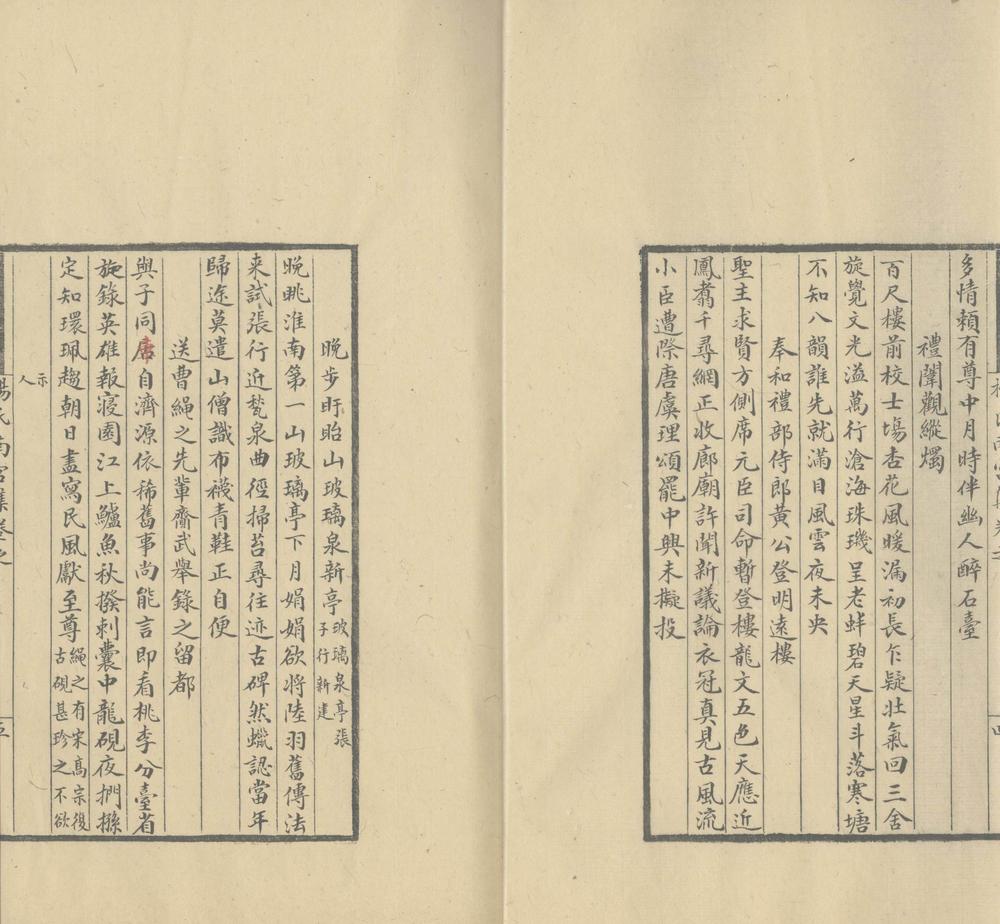 多情賴有尊中月時伴幽人醉石臺
禮闈觀縱燭
百尺樓前校士塲杏花風暖漏初長乍疑壯氣回三舍
旋覺文光溢萬行滄海珠璣呈老蚌碧天星斗落寒塘
不知八韻誰先就滿目風雲夜未央
奉和禮部侍郎黄公登明遠樓
聖主求賢方側席元臣司命暫登樓龍文五色天應近
鳳翥千尋網正收廊廟許聞新議論衣冠真見古風流
小臣遭際唐虞理頌罷中興未擬投
晚步盱眙山玻璃泉新亭玻璃泉亭張
子行新建
晚眺淮南第一山玻璃亭下月娟娟欲將陸羽舊傳法
来試張行近甃泉曲徑掃苔尋往迹古碑然蠟認當年
歸途莫遣山僧識布襪青鞋正自便
送曹繩之先輩齎武舉錄之留都
與子同唐自濟源依稀舊事尚能言即看桃李分臺省
旋錄英雄報寝園江上鱸魚秋撥剌囊中龍硯夜捫搎
定知環珮趨朝日盡寫民風獻至尊繩之有宋髙宗復
古硯甚珍之不欲
示
人
楊氏南宫集卷之
五